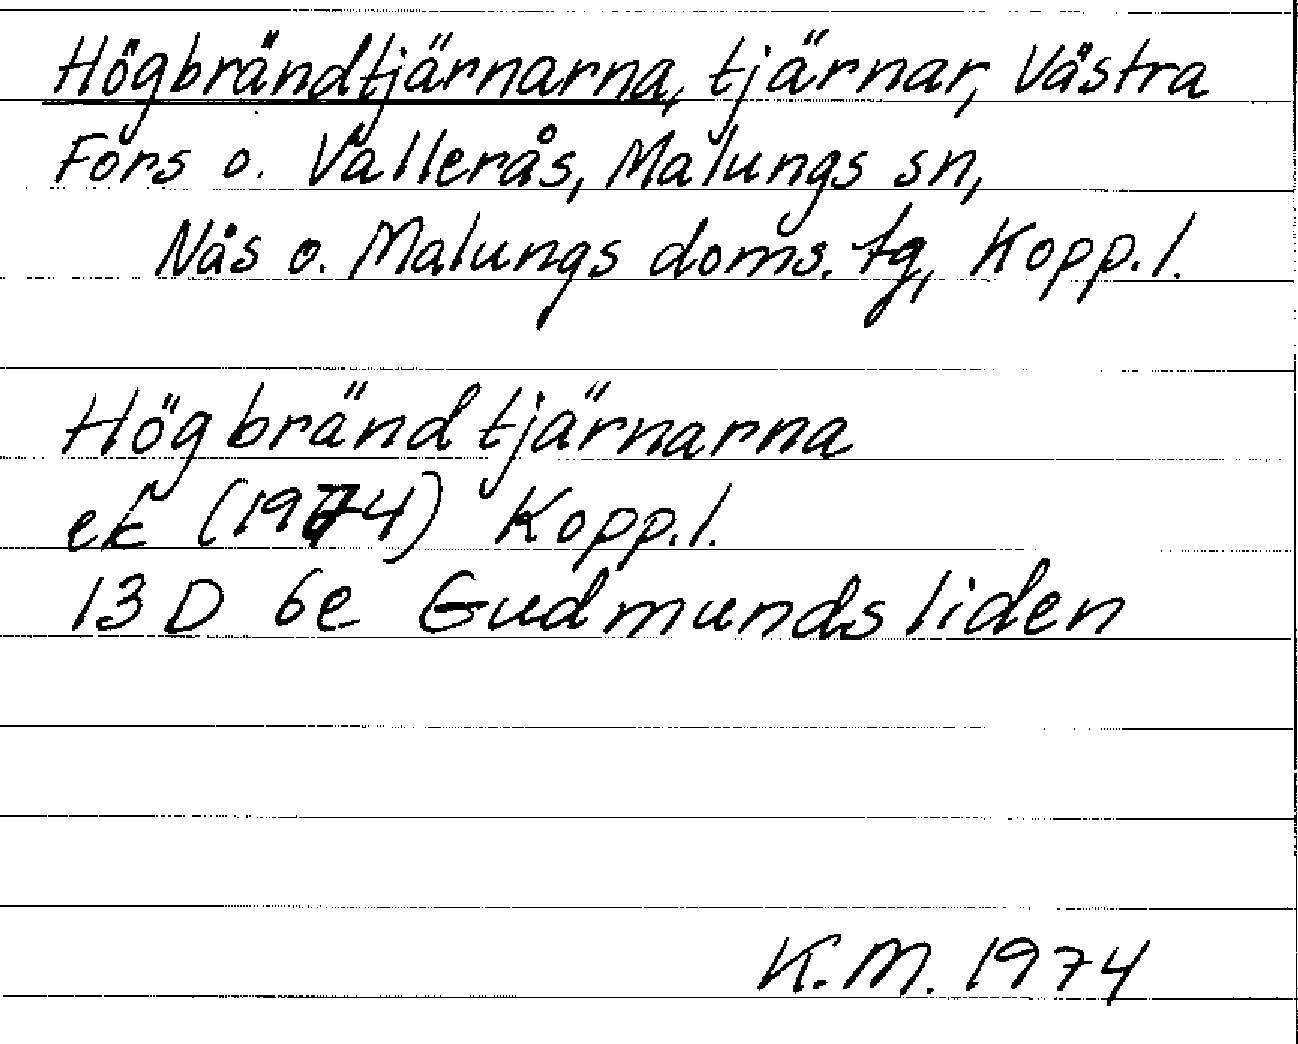 Högbrändtjärnarna, tjärnar, Västra
Fors o. Vallerås, Malungs sn,
Nås o. Malungs doms. tg, Kopp.l.
Högbrändtjärnarna
ek (1974) Kopp.l.
13D 6e Gudmundsliden
K.M. 1974